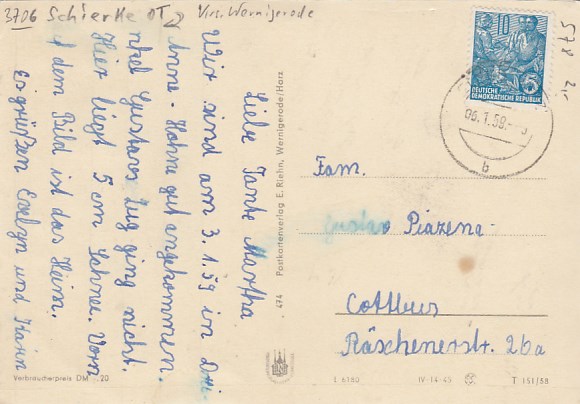 3706 Schierke OT Krs. Wernigerode
578
DEUTSCHE
DEMOKRATISCHE REPUBLIK
5
06.1.59.
b
Liebe Tante Martha
Wir sind am 3.1.59 in Drei
Anne-Hohne gut angekommen.
Onkel Gustavs Zug ging nicht.
Hier liegt 5 cm Schnee. Vorn
auf dem Bild ist das Heim.
Es grüßen Evelyn und Hanna
474 Postkartenverlag E. Riehn, Wernigerode/Harz
Fam.
Gustav Piazena
Cottbus
Räschenerstr. 26a
Verbraucherpreis DM -.20
L 6180 IV-14-45 T 151/58